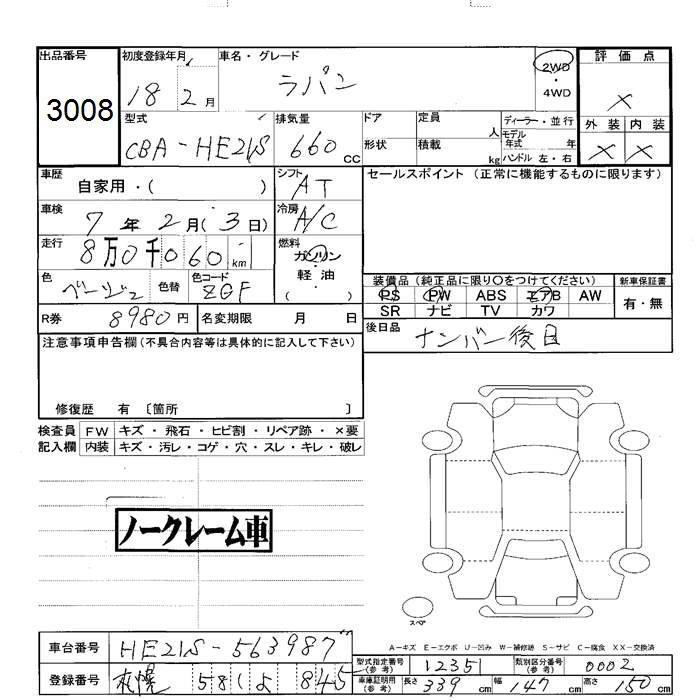 出品番号 初度登録年月 車名・グレード 2WD・4WD 評価点
3008 18 2月 ラパン ×
型式 排気量 ドア 定員 人 ディーラー・並行 外装 内装
CBA-HE21S 660cc 形状 積載 kg モデル年式 年 × ×
ハンドル 左・右
車歴 自家用・( ) シフト AT セールスポイント (正常に機能するものに限ります)
車検 7年2月(3日) 冷房 A/C
走行 8万0千060km 燃料 ガソリン・軽油( )
色 ベージュ 色替 色コード ZGF
装備品 (純正品に限り○をつけてください) 新車保証書
PS PW ABS エアB AW 有・無
SR ナビ TV カワ
R券 8980円 名変期限 月 日 後日品 ナンバー後日
注意事項申告欄 (不具合内容等は具体的に記入して下さい)
修復歴 有 〔箇所 〕
検査員 FW キズ・飛石・ヒビ割・リペア跡・×要
記入欄 内装 キズ・汚レ・コゲ・穴・スレ・キレ・破レ
ノークレーム車
スペア
A-キズ E-エクボ U-凹み W-補修跡 S-サビ C-腐食 XX-交換済
車台番号 HE21S-563987 型式指定番号(参考) 12351 類別区分番号(参考) 0002
登録番号 札幌 581 よ 845 車庫証明用(参考) 長さ 339cm 幅 147cm 高さ 150cm